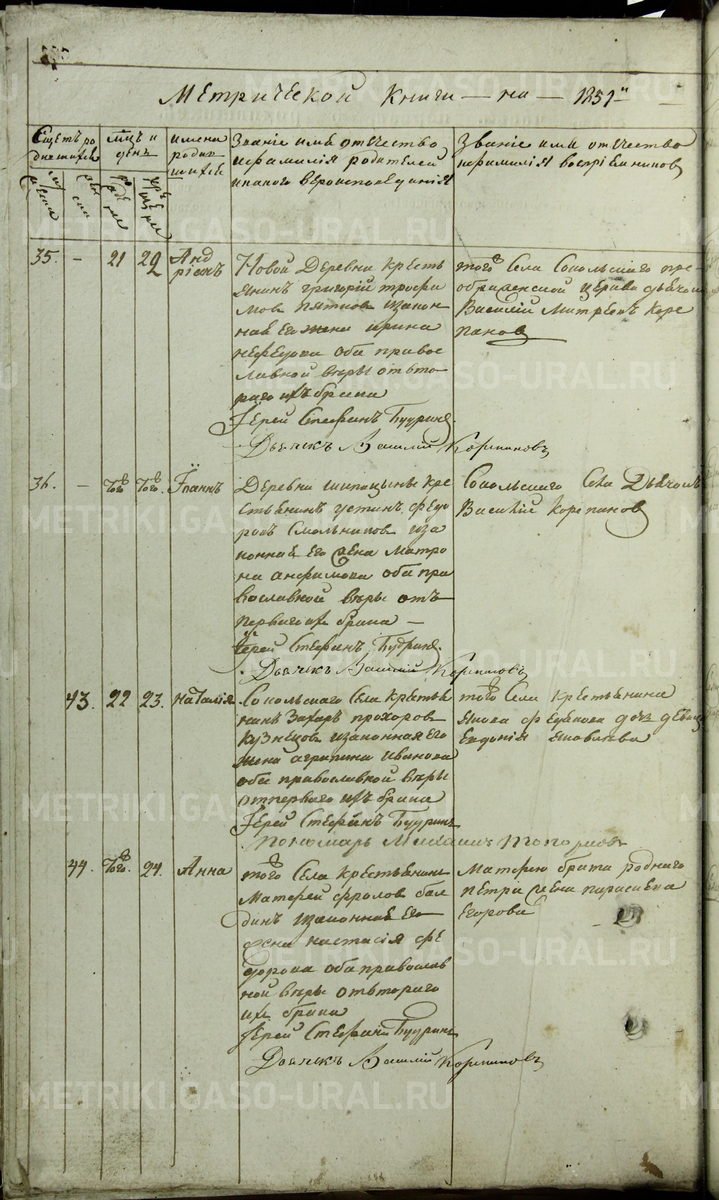 Метрической Книги — на — 1851й
Щетъ ро
дившихся
мцъ и
день
имена
родив
шихся
Званіе имя отчество
ифамилія родителей
икакого вероисповеданія
Званіе имя отчество
ифамилія воспріемниковъ
35. — 21 22
Анд
ріанъ
Новой Деревни кресть
янинъ григорій трофи
мов пятков изакон
ная Его жена ирина
нефедова оба правос
лавной веры отвто
раго ихъ брака
Іерей Стефанъ Будринъ
Дьячекъ Василій Корепановъ
того Села Сокольскаго пре
ображенской церкви дьячокъ
Василій Митреевъ Коре
панов
36. — Того. Того. Іоаннъ
Деревни шипицыны кре
стьянинъ устинъ федо
ровъ Смольников иза
конная Его жена матро
на анфимова оба пра
вославной веры отъ
перваго их брака —
Іерей Стефанъ Будринъ.
Дьячекъ Василій Корепановъ
Сокольскаго Села Дьячокъ
Василій Корепанов
43. 22 23. наталія
Сокольскаго Села крестья
нинъ Захаръ прохоров
кузнецов изаконная Его
жена агрипина иванова
оба православной веры
отперваго ихъ брака
Іерей Стефанъ Будринъ
Пономарь Михаилъ Топорковъ
того Села крестьянина
якова федякова дочь девица
Евдокія яковлева
44. Того. 24. Анна
того Села крестьянин
Матфей фролов бал
динъ изаконная Его
жена настасія фе
дорова оба православ
ной веры отвтораго
их брака
Іерей Стефанъ Будринъ
Дьячекъ Василій Корепановъ
Матфею брата роднаго
петра жена парасковья
Егорова
METRIKI.GASO-URAL.RU